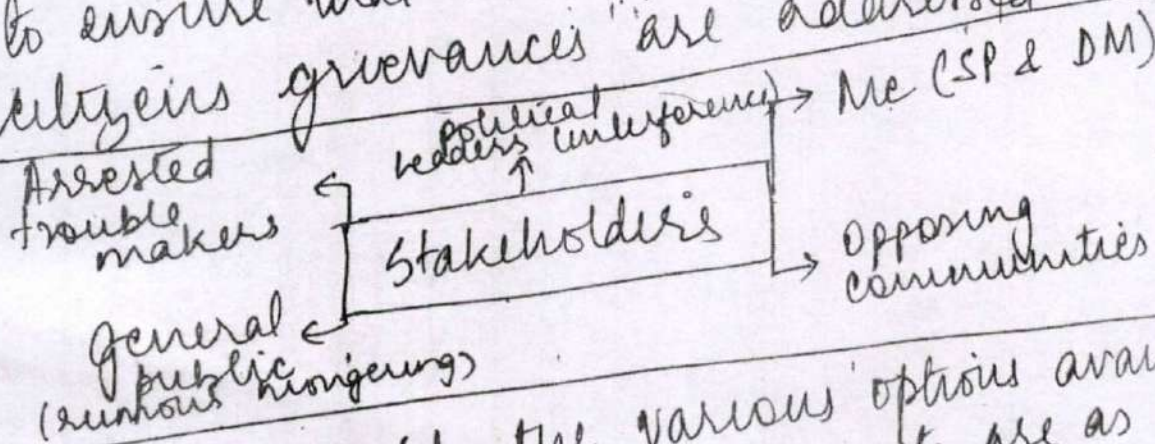 to ensure that
citizens grievances are addressed
Arrested
trouble
makers
political
leaders (interference)
Me (SP & DM)
Stakeholders
Opposing
communities
General
public
(rumours mongering)
the various options avai
are as